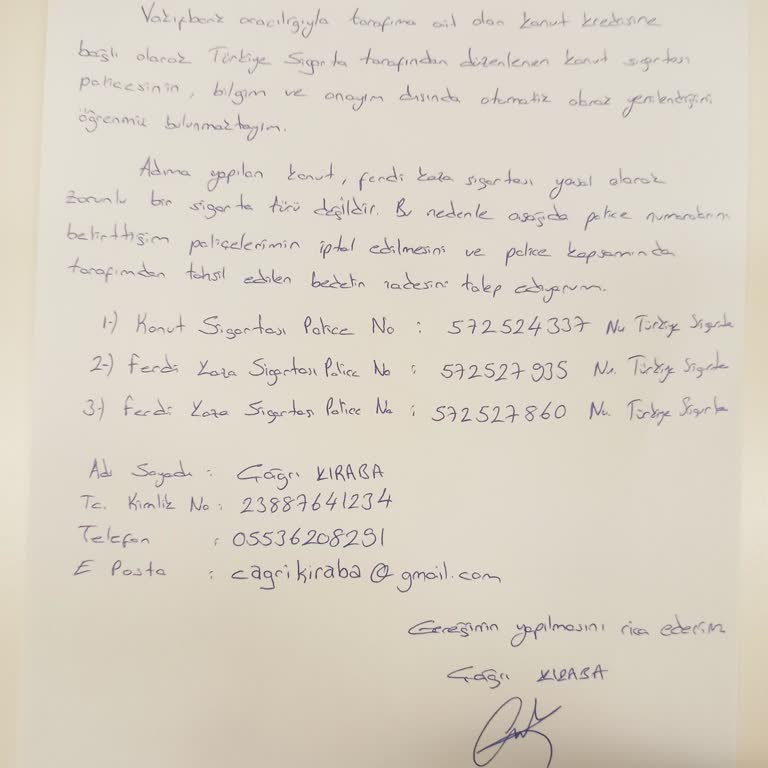 Vakıfbank aracılığıyla tarafıma ait olan konut kredisine
bağlı olarak Türkiye Sigorta tarafından düzenlenen konut sigortası
poliçesinin, bilgim ve onayım dışında otomatik olarak yenilendiğini
öğrenmiş bulunmaktayım.
Adıma yapılan konut, ferdi kaza sigortası yasal olarak
zorunlu bir sigorta türü değildir. Bu nedenle aşağıda poliçe numaralarını
belirttiğim poliçelerimin iptal edilmesini ve poliçe kapsamında
tarafımdan tahsil edilen bedelin iadesini talep ediyorum.
1-) Konut Sigortası Police No : 572524337 Nu Türkiye Sigorta
2-) Ferdi Kaza Sigortası Police No : 572527935 Nu. Türkiye Sigorta
3-) Ferdi Kaza Sigortası Police No : 572527860 Nu. Türkiye Sigorta
Adı Soyadı : Çağrı KIRABA
Tc. Kimlik No : 23887641234
Telefon : 05536208291
E Posta : cagrikiraba@gmail.com
Gereğinin yapılmasını rica ederim
Çağrı KIRABA